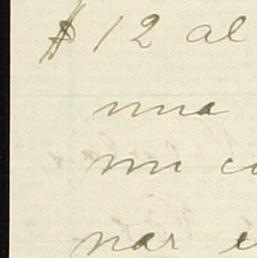 $12 al
una
mi co
nar e